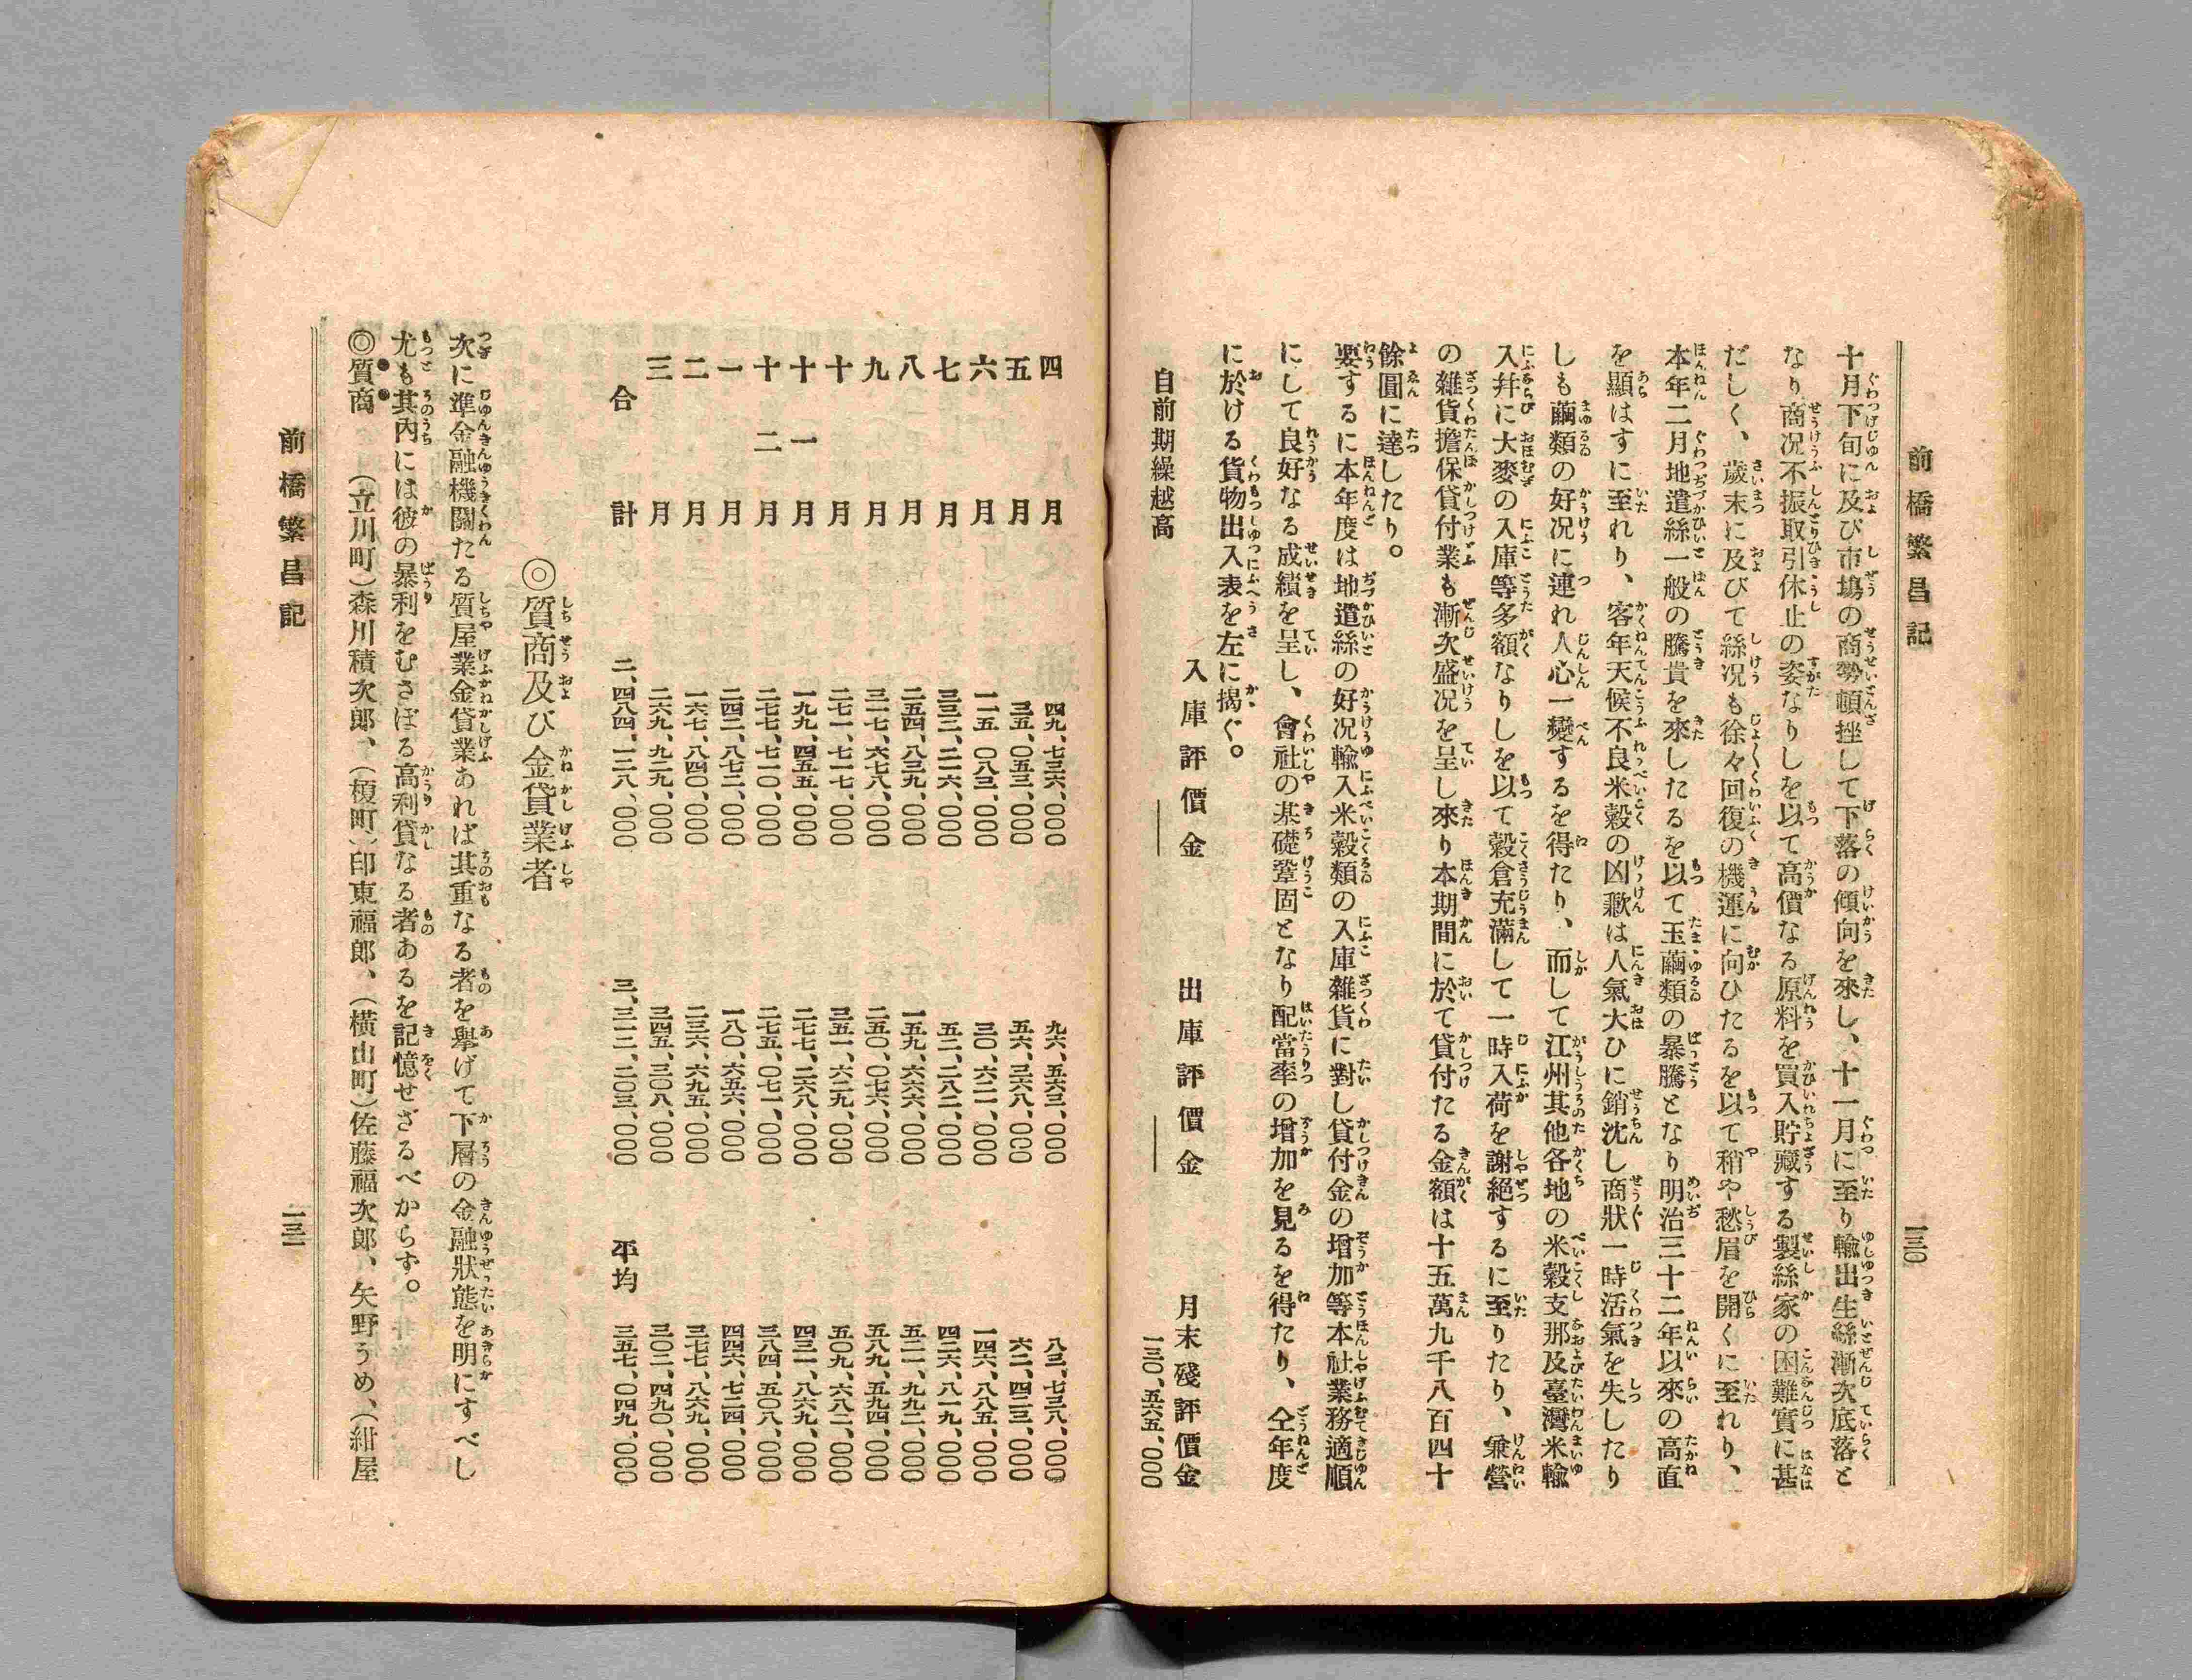 前橋繁昌記
一三〇
十月下旬に及び市塲の商勢頓挫して下落の傾向を來し、十一月に至り輸出生絲漸次底落と
なり商况不振取引休止の姿なりしを以て高價なる原料を買入貯藏する製絲家の困難實に甚
だしく、歲末に及びて絲况も徐々回復の機運に向ひたるを以て稍や愁眉を開くに至れり、
本年二月地遣絲一般の騰貴を來したるを以て玉繭類の暴騰となり明治三十二年以來の高直
を顯はすに至れり、客年天候不良米穀の凶歉は人氣大ひに銷沈し商狀一時活氣を失したり
しも繭類の好况に連れ人心一變するを得たり、而して江州其他各地の米穀支那及臺灣米輸
入幷に大麥の入庫等多額なりしを以て穀倉充滿して一時入荷を謝絕するに至りたり、兼營
の雜貨擔保貸付業も漸次盛况を呈し來り本期間に於て貸付たる金額は十五萬九千八百四十
餘圓に達したり。
要するに本年度は地遣絲の好况輸入米穀類の入庫雜貨に對し貸付金の增加等本社業務適順
にして良好なる成績を呈し、會社の基礎鞏固となり配當率の增加を見るを得たり、仝年度
に於ける貨物出入表を左に揭ぐ。
入庫評價金 出庫評價金 月末殘評價金
自前期繰越高 一三〇、五六五、〇〇〇
四月 四九、七三六、〇〇〇 九六、五六三、〇〇〇 八三、七三八、〇〇〇
五月 三五、〇五三、〇〇〇 五六、三六八、〇〇〇 六二、四二三、〇〇〇
六月 一一五、〇八三、〇〇〇 三〇、六二一、〇〇〇 一四六、八八五、〇〇〇
七月 三三二、二一六、〇〇〇 五二、二八二、〇〇〇 四二六、八一九、〇〇〇
八月 二五四、八三九、〇〇〇 一五九、六六六、〇〇〇 五二一、九九二、〇〇〇
九月 三一七、六七八、〇〇〇 二五〇、〇七六、〇〇〇 五八九、五九四、〇〇〇
十月 二七一、七一七、〇〇〇 三五一、六二九、〇〇〇 五〇九、六八二、〇〇〇
十一月 一九九、四五五、〇〇〇 二七七、二六八、〇〇〇 四三一、八六九、〇〇〇
十二月 二二七、七一〇、〇〇〇 二七五、〇七一、〇〇〇 三八四、五〇八、〇〇〇
一月 二四二、八七二、〇〇〇 一八〇、六五六、〇〇〇 四四六、七二四、〇〇〇
二月 一六七、八四〇、〇〇〇 二三六、六九五、〇〇〇 三七七、八六九、〇〇〇
三月 二六九、九二九、〇〇〇 三四五、三〇八、〇〇〇 三〇二、四九〇、〇〇〇
合計 二、四八四、一二八、〇〇〇 三、三一二、二〇三、〇〇〇 平均 三五七、〇四九、〇〇〇
◎質商及び金貸業者
次に準金融機關たる質屋業金貸業あれば其重なる者を擧げて下層の金融狀態を明にすべし
尤も其內には彼の暴利をむさぼる高利貸なる者あるを記憶せざるべからず。
◎質商 (立川町)森川積次郎、(榎町)印東福郎、(橫山町)佐藤福次郎、矢野うめ、(紺屋
前橋繁昌記
一三一